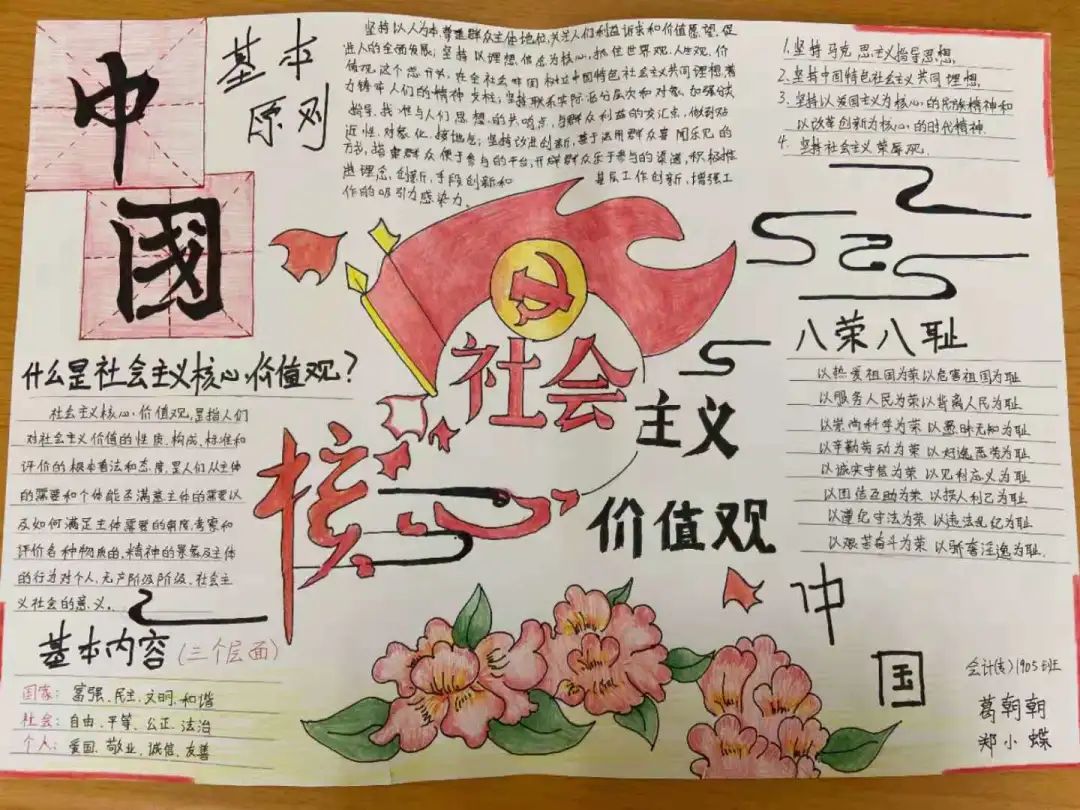 中
國
基本
原则
坚持以人为本尊重群众主体地位,关注人们利益诉求和价值愿望,促
进人的全面发展;坚持以理想信念为核心,抓住世界观、人生观、价
值观这个总开关,在全社会牢固树立中国特色社会主义共同理想,着
力铸牢人们的精神支柱;坚持联系实际,区分层次和对象,加强分类
指导,找准与人们思想的共鸣点,与群众利益的交汇点,做到贴
近性、对象化、接地气;坚持改进创新,善于运用群众喜闻乐见的
方式,搭建群众便于参与的平台,开辟群众乐于参与的渠道,积极推
进理念创新、手段创新和基层工作创新,增强工
作的吸引力感染力。
1.坚持马克思主义指导思想
2.坚持中国特色社会主义共同理想
3.坚持以爱国主义为核心的民族精神和
以改革创新为核心的时代精神.
4.坚持社会主义荣辱观.
什么是社会主义核心价值观?
社会主义核心价值观,是指人们
对社会主义价值的性质、构成、标准和
评价的根本看法和态度,是人们从主体
的需要和客体能否满意主体的需要以
及如何满足主体需要的角度,考察和
评价各种物质的、精神的现象及主体
的行为对个人、无产阶级阶级、社会主
义社会的意义。
社会
主义
核心
价值观
八荣八耻
以热爱祖国为荣以危害祖国为耻
以服务人民为荣以背离人民为耻
以崇尚科学为荣以愚昧无知为耻
以辛勤劳动为荣以好逸恶劳为耻
以诚实守信为荣以见利忘义为耻
以团结互助为荣以损人利己为耻
以遵纪守法为荣以违法乱纪为耻
以艰苦奋斗为荣以骄奢淫逸为耻.
基本内容(三个层面)
国家:富强、民主、文明、和谐
社会:自由、平等、公正、法治
个人:爱国、敬业、诚信、友善
中
国
会计(专)1905班
葛朝朝
郑小蝶